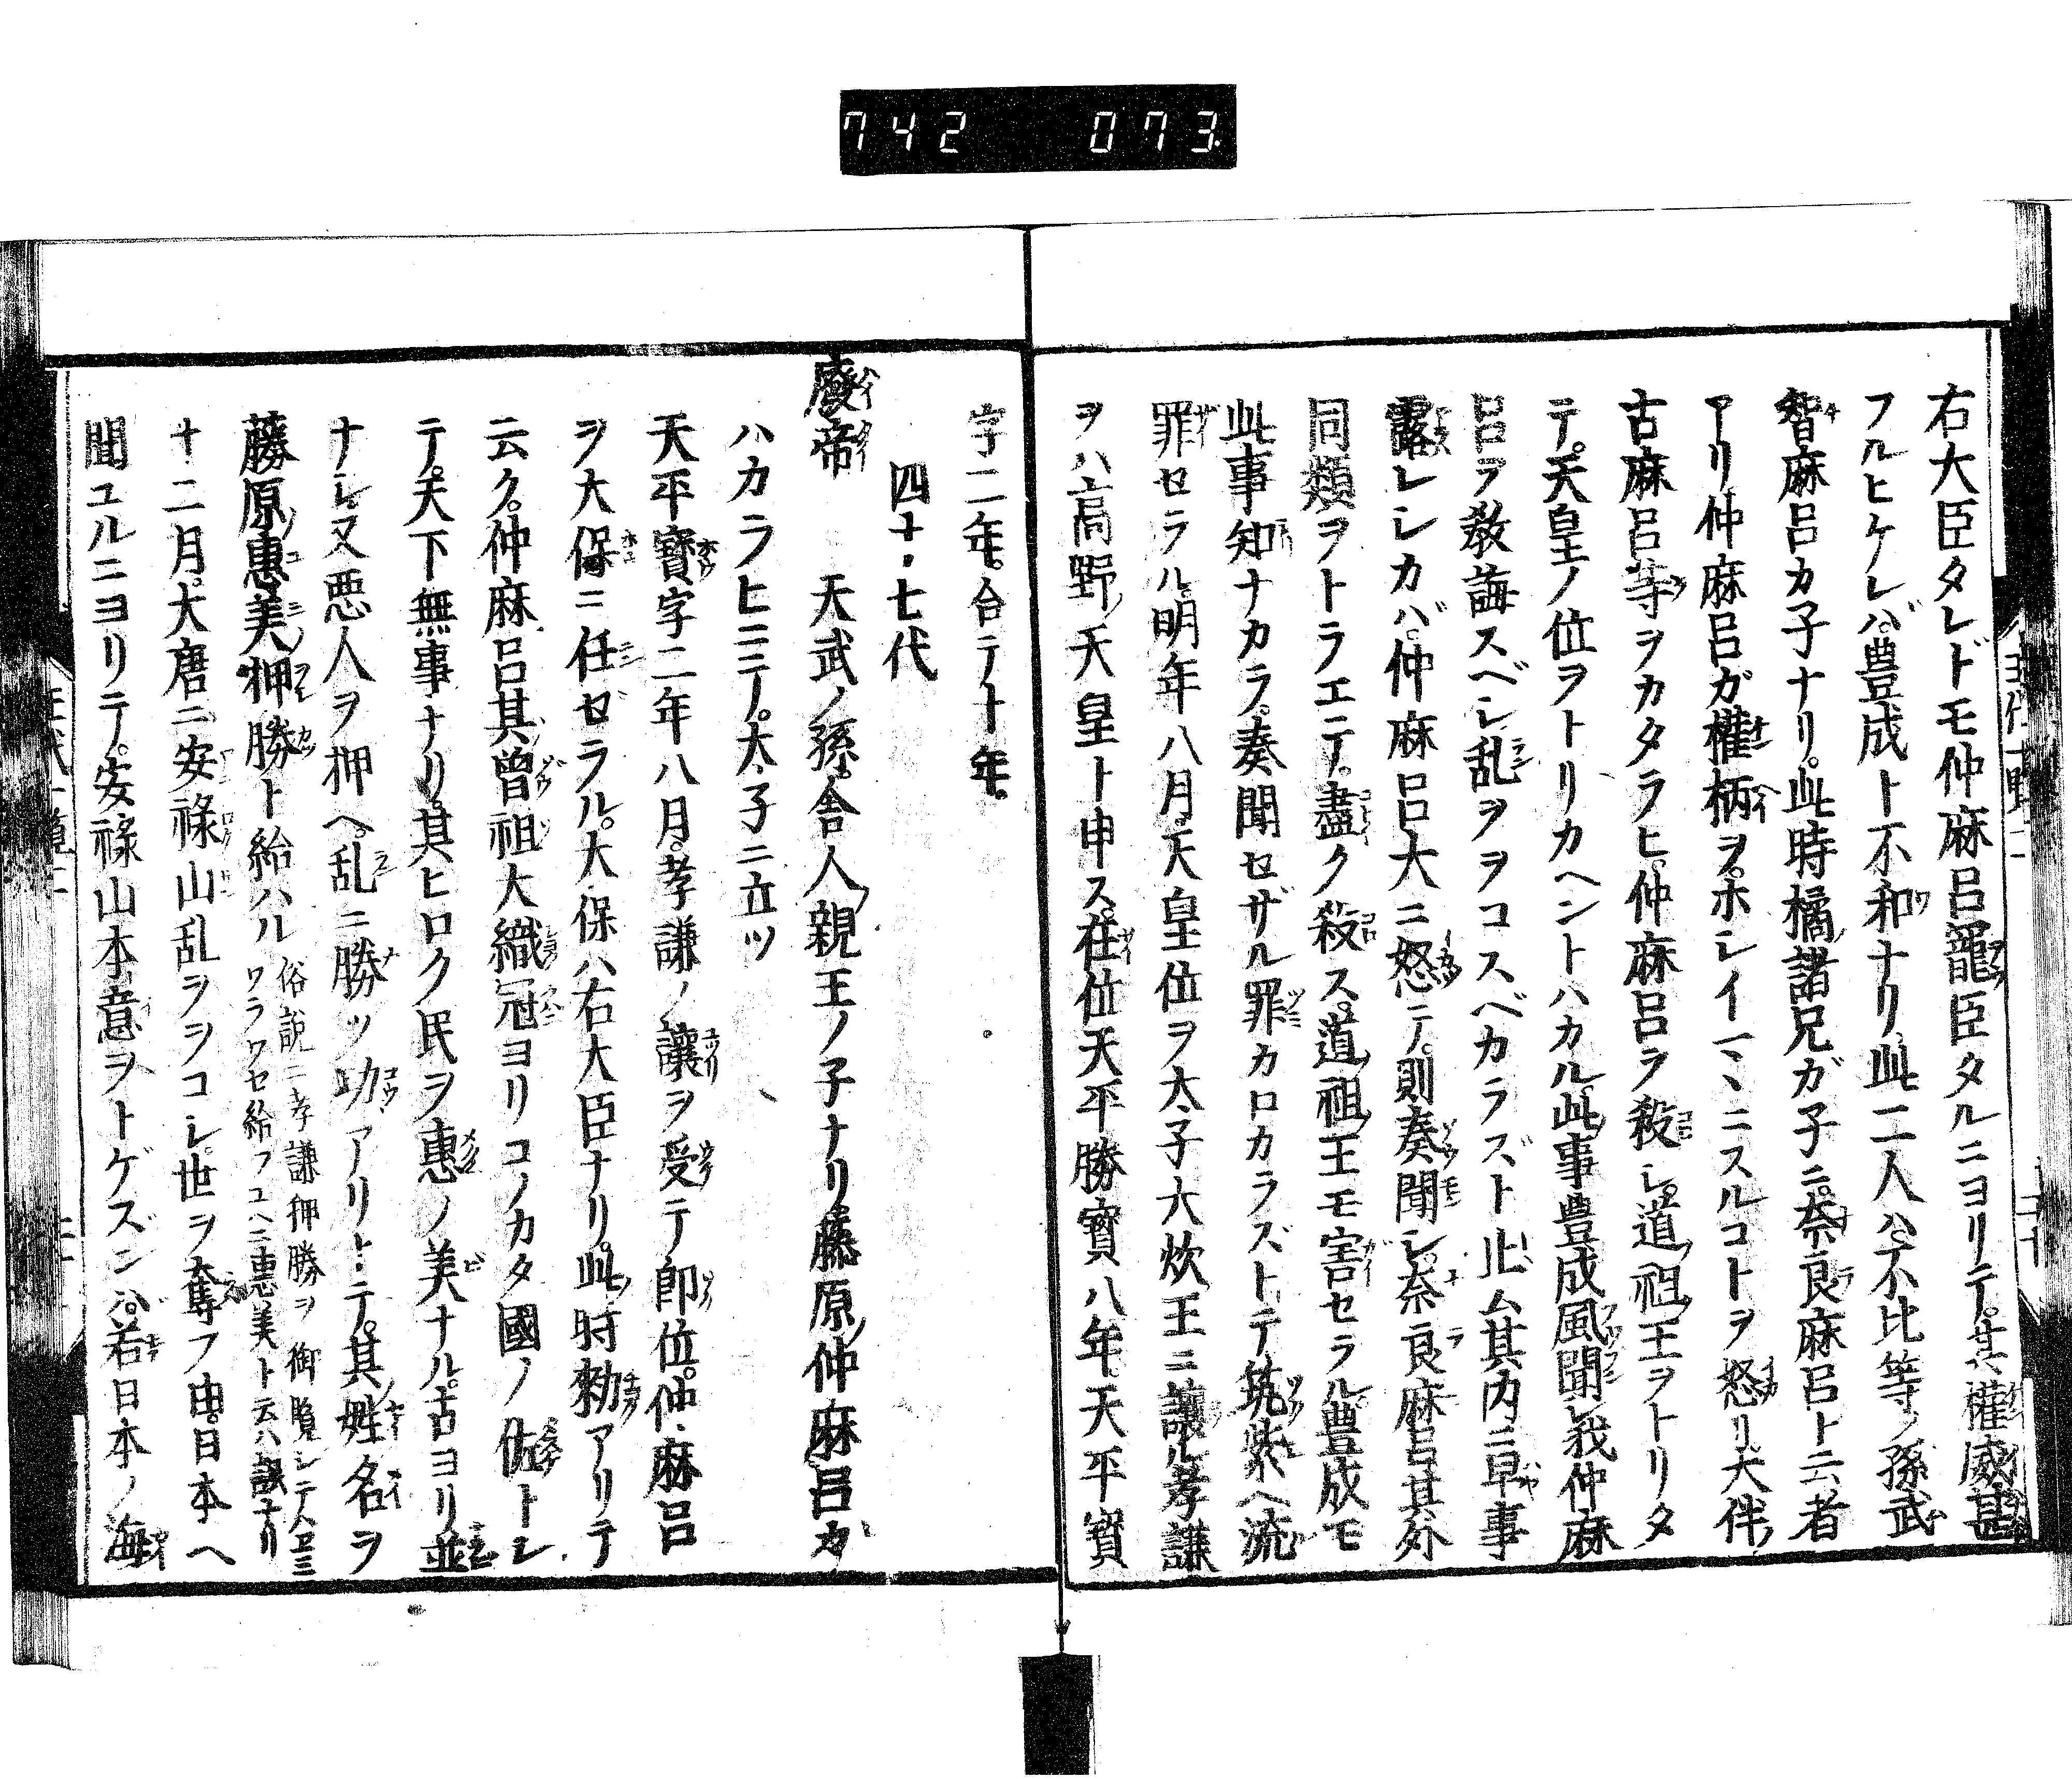 742 073
右大臣タレドモ仲麻呂寵臣タルニヨリテ。其權威甚
フルヒケレバ。豊成ト不和ナリ。此二人ハ。不比等ノ孫武
智麻呂カ子ナリ。此時橘諸兄ガ子ニ。奈良麻呂ト云者
アリ仲麻呂ガ權柄ヲ。ホレイマヽニスルコトヲ怒リ大伴
古麻呂等ヲカタラヒ。仲麻呂ヲ殺シ。道祖王ヲトリタ
テ。天皇ノ位ヲトリカヘントハカル。此事豊成風聞シ我仲麻
呂ヲ教誨スベシ乱ヲヲコスベカラズト止ム其内ニ早事
露レシカバ。仲麻呂大ニ怒テ。則奏聞シ。奈良麻呂其外
同類ヲトラエテ。盡ク殺ス。道祖王モ害セラル豊成モ
此事知ナカラ。奏聞セザル罪カロカラズトテ筑紫ヘ流
罪セラル。明年八月。天皇位ヲ太子大炊王ニ讓ル孝謙
ヲハ高野天皇ト申ス。在位天平勝寶八年。天平寶
字二年。合テ十年。
四十七代
廢帝 天武ノ孫。舍人親王ノ子ナリ藤原仲麻呂ガ
ハカラヒニテ。太子ニ立ツ
天平寶字二年八月。孝謙ノ讓ヲ受テ卽位。仲麻呂
ヲ大保ニ任ゼラル。大保ハ右大臣ナリ。此時勅アリテ
云ク。仲麻呂其曾祖大織冠ヨリコノカタ國ノ佐トシ
テ。天下無事ナリ。其ヒロク民ヲ惠ノ美ナル。古ヨリ並
ナシ又悪人ヲ押ヘ。乱ニ勝ツ功アリトテ。其姓名ヲ
藤原惠美押勝ト給ハル 俗説ニ孝謙押勝ヲ御覧シテハエミ
ワラワセ給フユヘニ惠美ト云ハ誤ナリ
十二月。大唐ニ安祿山乱ヲヲコシ。世ヲ奪フ由。日本ヘ
聞ユルニヨリテ。安祿山本意ヲトゲズンバ。若日本ノ海